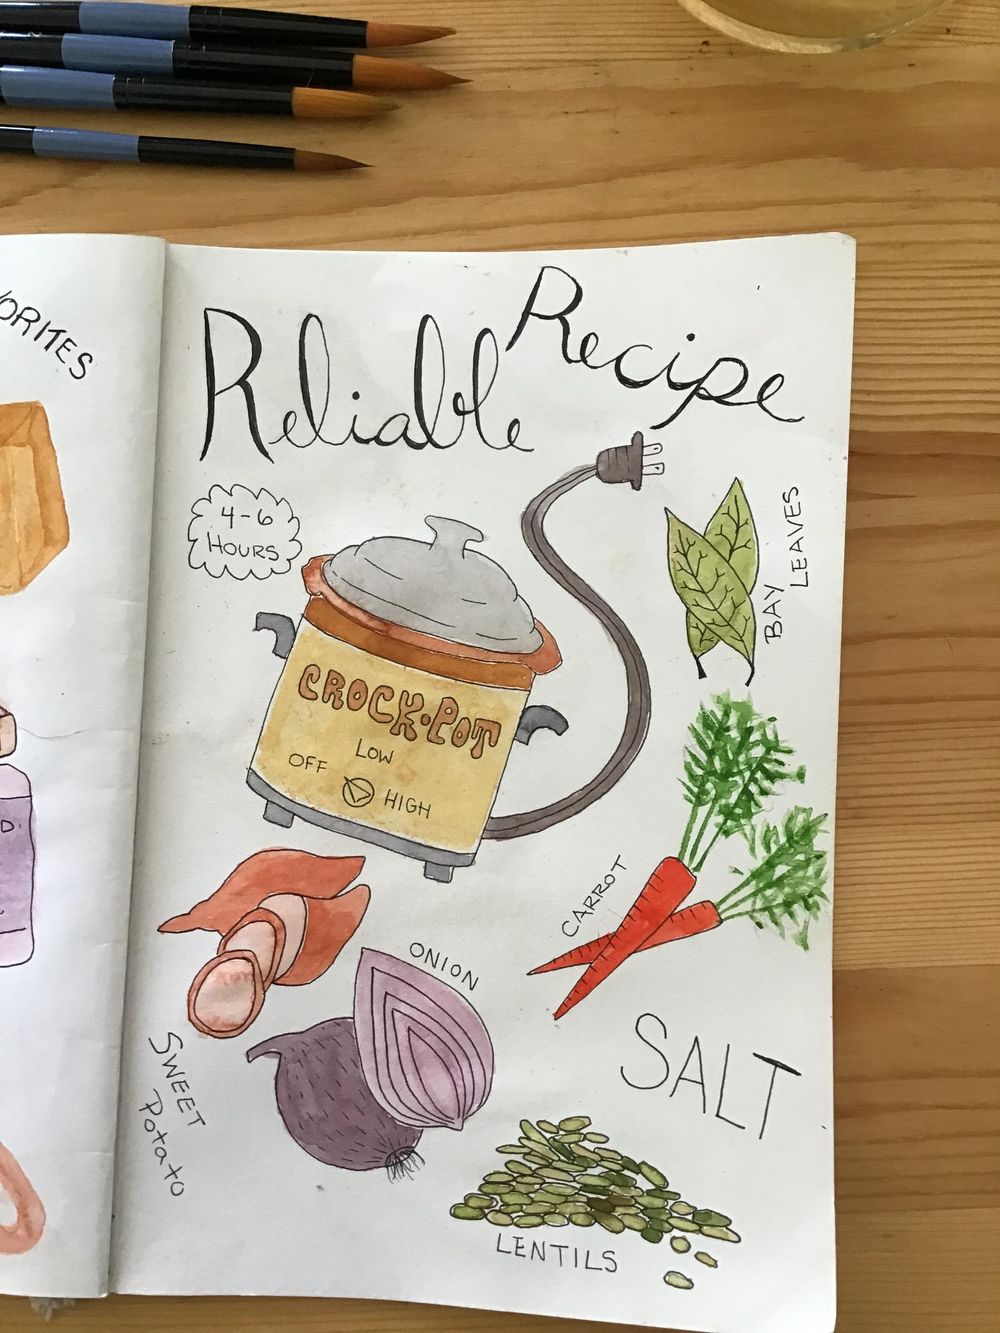 Reliable Recipe
4-6
HOURS
BAY
LEAVES
CROCK-POT
LOW
OFF
HIGH
CARROT
ONION
SWEET
Potato
SALT
LENTILS